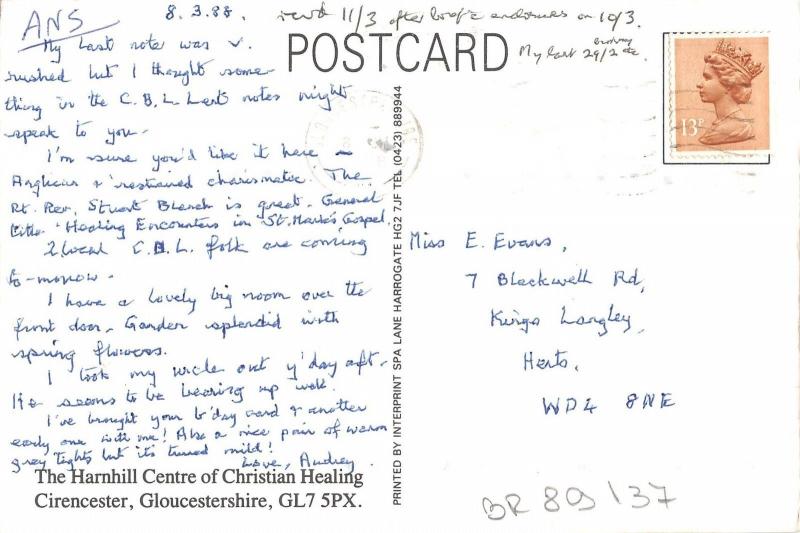 ANS
8.3.88.
recvd 11/3 after enclosures on 10/3.
POSTCARD
My last 29/2
13P
My last note was v.
rushed but I thought some-
thing in the C.B.L. Lent notes might
speak to you.
I'm sure you'd like it here –
Anglican & 'restrained' charismatic. The
Rt. Rev. Stuart Blanch is great. General
title 'Healing Encounters in St. Mark's Gospel.
2 local folk are coming
to-morrow.
I have a lovely big room over the
front door. Garden splendid with
spring flowers.
I took my uncle out y'day aft.
He seems to be bearing up well.
I've brought your b'day card & another
early one with me! Also a nice pair of warm
grey tights but it's turned mild!
Love, Audrey.
The Harnhill Centre of Christian Healing
Cirencester, Gloucestershire, GL7 5PX.
PRINTED BY INTERPRINT SPA LANE HARROGATE HG2 7JF TEL (0423) 889944
Miss E. Evans,
7 Blackwell Rd,
Kings Langley,
Herts.
WD4 8NE
BR 809137